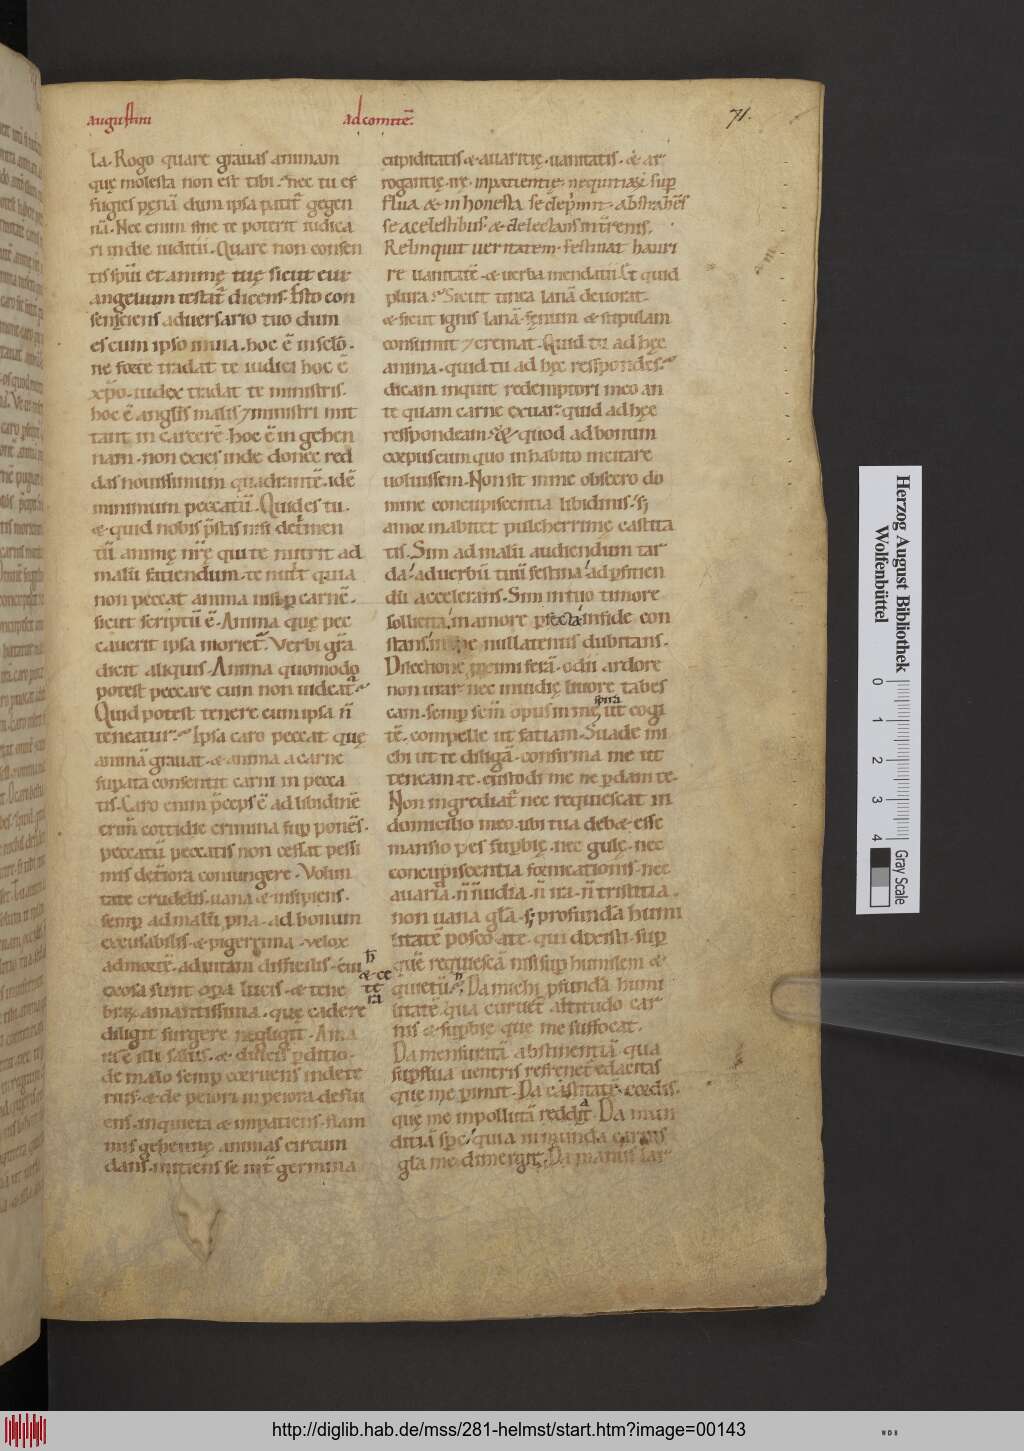 augustini
ad comitē.
71.
la. Rogo quare grauas animam
quę molesta non est tibi. nec tu ef
fugies pęnā dum ipsa patit̄ gegen
nā. Nec enim sine te poterit iudica
ri in die iuditii. Quare non consen
tis sp̄ui et animę tuę sicut eua
angelium testat̄ dicens. Esto con
senciens aduersario tuo dum
es cum ipso in uia. hoc ē in sclō.
ne forte tradat te iudici hoc ē
xp̄o. iudex tradat te ministris.
hoc ē anglis malis & ministri mit
tant in carcerē. hoc ē in gehen
nam. non exies inde donec red
das nouissimum quadrantē. idē
minimum peccatū. Quid es tu.
& quid nobis p̄stas nisi detrimen
tū animę nr̄ę qui te nutrit ad
malū fatiendum. te nutrit quia
non peccat anima nisi p carnē.
sicut scriptū ē. Anima quę pec
cauerit ipsa moriet̄. Verbi gr̄a
dicit aliquis. Anima quomodo
potest peccare cum non uideat̄
Quid potest tenere cum ipsa n̄
teneatur. Ipsa caro peccat quę
animā grauat. & anima a carne
supata consentit carni in pecca
tis. Caro enim p̄ceps ē ad libidinē
crim̄ cottidie crimina sup ponēs.
peccatū peccatis non cessat pessi
mis deteriora coniungere. Volun
tate crudelis. uana & insipiens.
semp ad malū p̄na. ad bonum
excusabilis. & pigerrima. uelox
ad mortē. ad uitam difficilis. cui
exosa sunt opa lucis. & tene
h̄
& ce
te
ra
brę amantissima. quę cadere
diligit surgere negligit. Ama
ra ē illi salus. & dulcis pditio.
de malo semp corruens in dete
rius. & de peiori in peiora deflu
ens. inquieta & impatiens. flam
mis gehennę animas circum
dans. mittens se int̄ germina
cupiditatis & auaritię. uanitatis. & ar
rogantię. irę. inpatientię. nequitiasq; sup
flua & inhonesta se dep̄mit. abstrahēs
se a celestibus. & delectans in t̄renis.
Relinquit ueritatem. festinat hauri
re uanitatē. & uerba mendatii. Et quid
plura. Sicut tinea lanā deuorat.
& sicut ignis lanā. fęnum & stipulam
consumit & cremat. Quid tu ad hęc
anima. quid tu ad hęc respondes.
dicam inquit redemptori meo an
te quam carne exuar. quid ad hęc
respondeam. quod ad bonum
corpus cum quo inhabito incitare
uoluissem. Non sit in me obsecro do
mine concupiscentia libidinis. s;
amor inhabitet pulcherrimę castita
tis. Sim ad malū audiendum tar
da. ad uerbū tuū festina. ad p̄ficien
dū accelerans. Sim in tuo timore
sollicita. in amore pfecta. in fide con
stans. in spe nullatenus dubitans.
Dilectione p̄ximi ferā. odii ardore
non urar. nec inuidię liuore tabes
cam. semp sc̄m opus in me spira ut cogi
tē. compelle ut fatiam. Suade mi
chi ut te diligā. confirma me ut
teneam te. custodi me ne pdam te.
Non ingrediat̄ nec requiescat in
domicilio meo. ubi tua deb& esse
mansio pes supbię. nec gulę. nec
concupiscentia fornicationis. nec
auaria. n̄ inuidia. n̄ ira. n̄ tristitia.
non uana gl̄a. s; profunda humi
litatē posco a te. qui dixisti. sup
quē requiescā nisi sup humilem &
quietū. Da michi pfunda humi
litatē. qua curuet̄ altitudo car
nis & supbię. que me suffocat.
Da mensuratā abstinentiā. qua
supflua uentris refrenet edacitas
que me p̄mit. Da castitatē cordis.
que me inpollutā reddat. Da mun
ditiā spc̄. quia inmunda carnis
gl̄a me dimergit. Da manus lar
Herzog August Bibliothek
Wolfenbüttel
0 1 2 3 4
Gray Scale
http://diglib.hab.de/mss/281-helmst/start.htm?image=00143
WDB